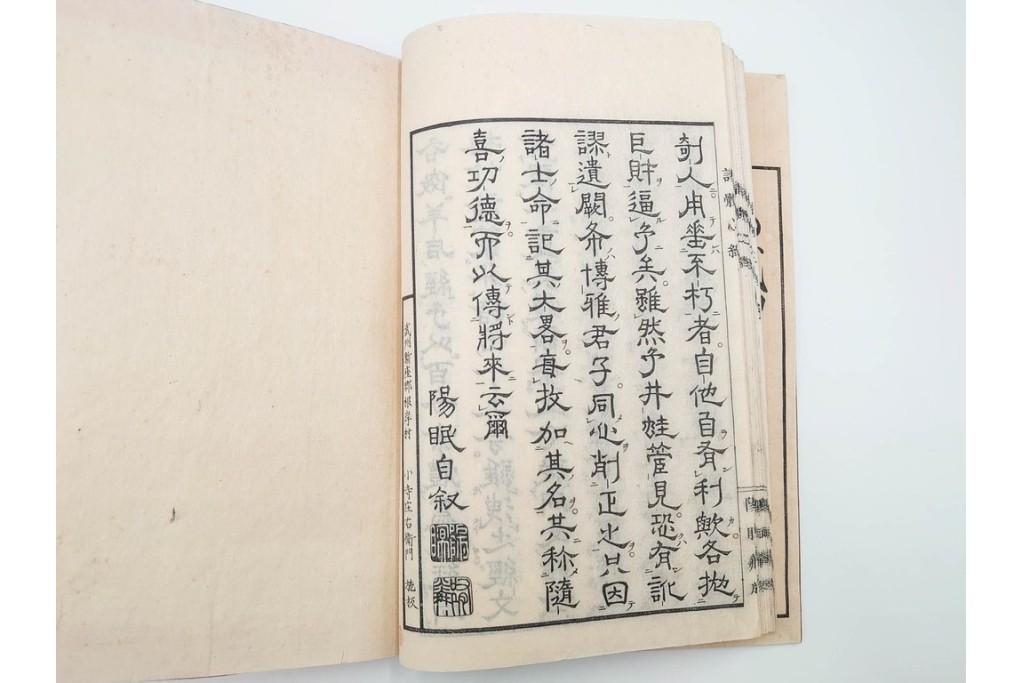 剞人用垂不朽者自他自有利歟各抛
巨財逼予矣雖然予井蛙管見恐有訛
謬遺闕希博雅君子同心削正之只因
諸士命記其大畧毎枚加其名其称隨
喜功德而以傳將來云爾
陽眠自叙
武州新座郡根岸村 小寺庄右衛門 施板